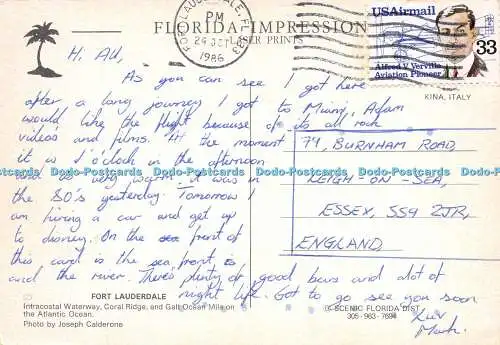 FLORIDA IMPRESSION
LASER PRINT
FORT LAUDERDALE, FL 333
PM
24 OCT
1986
USAirmail
33
Alfred V. Verville
Aviation Pioneer
KINA, ITALY
Hi All,
As you can see I got here
after a long journey I got to Miami, Adam
would like the flight because of its all rock
video's and films. At the moment
it is 1 o'clock in the afternoon
and very warm it was in
the 80's yesterday. Tomorrow I
am hiring a car and get up
to disney. On the front of
this card is the sea front is
and the river. There's plenty of good bars and alot of
night life. Got to go see you soon
Luv
Mark.
79, BURNHAM ROAD,
LEIGH-ON-SEA,
ESSEX, SS9 2JR,
ENGLAND
FORT LAUDERDALE
Intracoastal Waterway, Coral Ridge, and Galt Ocean Mile on
the Atlantic Ocean.
Photo by Joseph Calderone
© SCENIC FLORIDA DIST.
305-963-7694
Dodo-Postcards